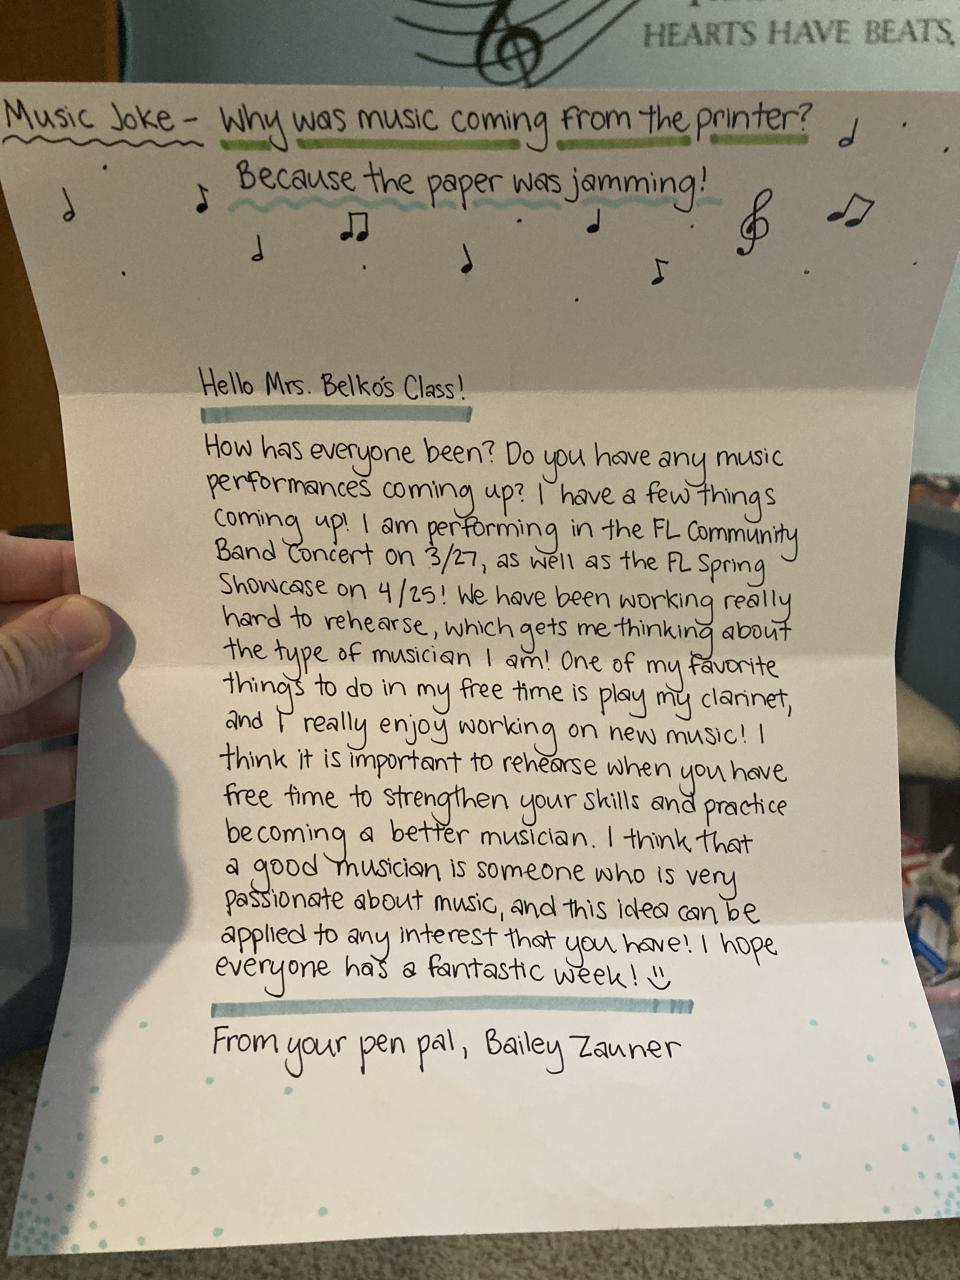 HEARTS HAVE BEATS,
Music Joke - Why was music coming from the printer?
Because the paper was jamming!
Hello Mrs. Belko's Class!
How has everyone been? Do you have any music
performances coming up? I have a few things
coming up! I am performing in the FL Community
Band Concert on 3/27, as well as the FL Spring
Showcase on 4/25! We have been working really
hard to rehearse, which gets me thinking about
the type of musician I am! One of my favorite
things to do in my free time is play my clarinet,
and I really enjoy working on new music! I
think it is important to rehearse when you have
free time to strengthen your skills and practice
becoming a better musician. I think that
a good musician is someone who is very
passionate about music, and this idea can be
applied to any interest that you have! I hope
everyone has a fantastic week! :)
From your pen pal, Bailey Zauner